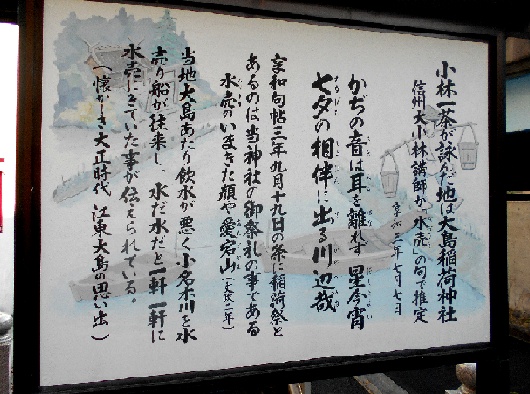 小林一茶が詠んだ地は大島稲荷神社
信州大小林講師が「水売」の句で推定
享和三年七月七日
かぢの音は耳を離れず星今宵
七夕の相伴に出る川辺哉
享和句帖三年九月十九日の条に稲荷祭と
あるのは当神社の御祭礼の事である
水売のいまきた顔や愛宕山(文化二年)
当地大島あたり飲水が悪く小名木川を水
売り船が往来し、水だ水だと一軒一軒に
水売にきていた事が伝えられている。
(懐かしき大正時代 江東大島の思い出)